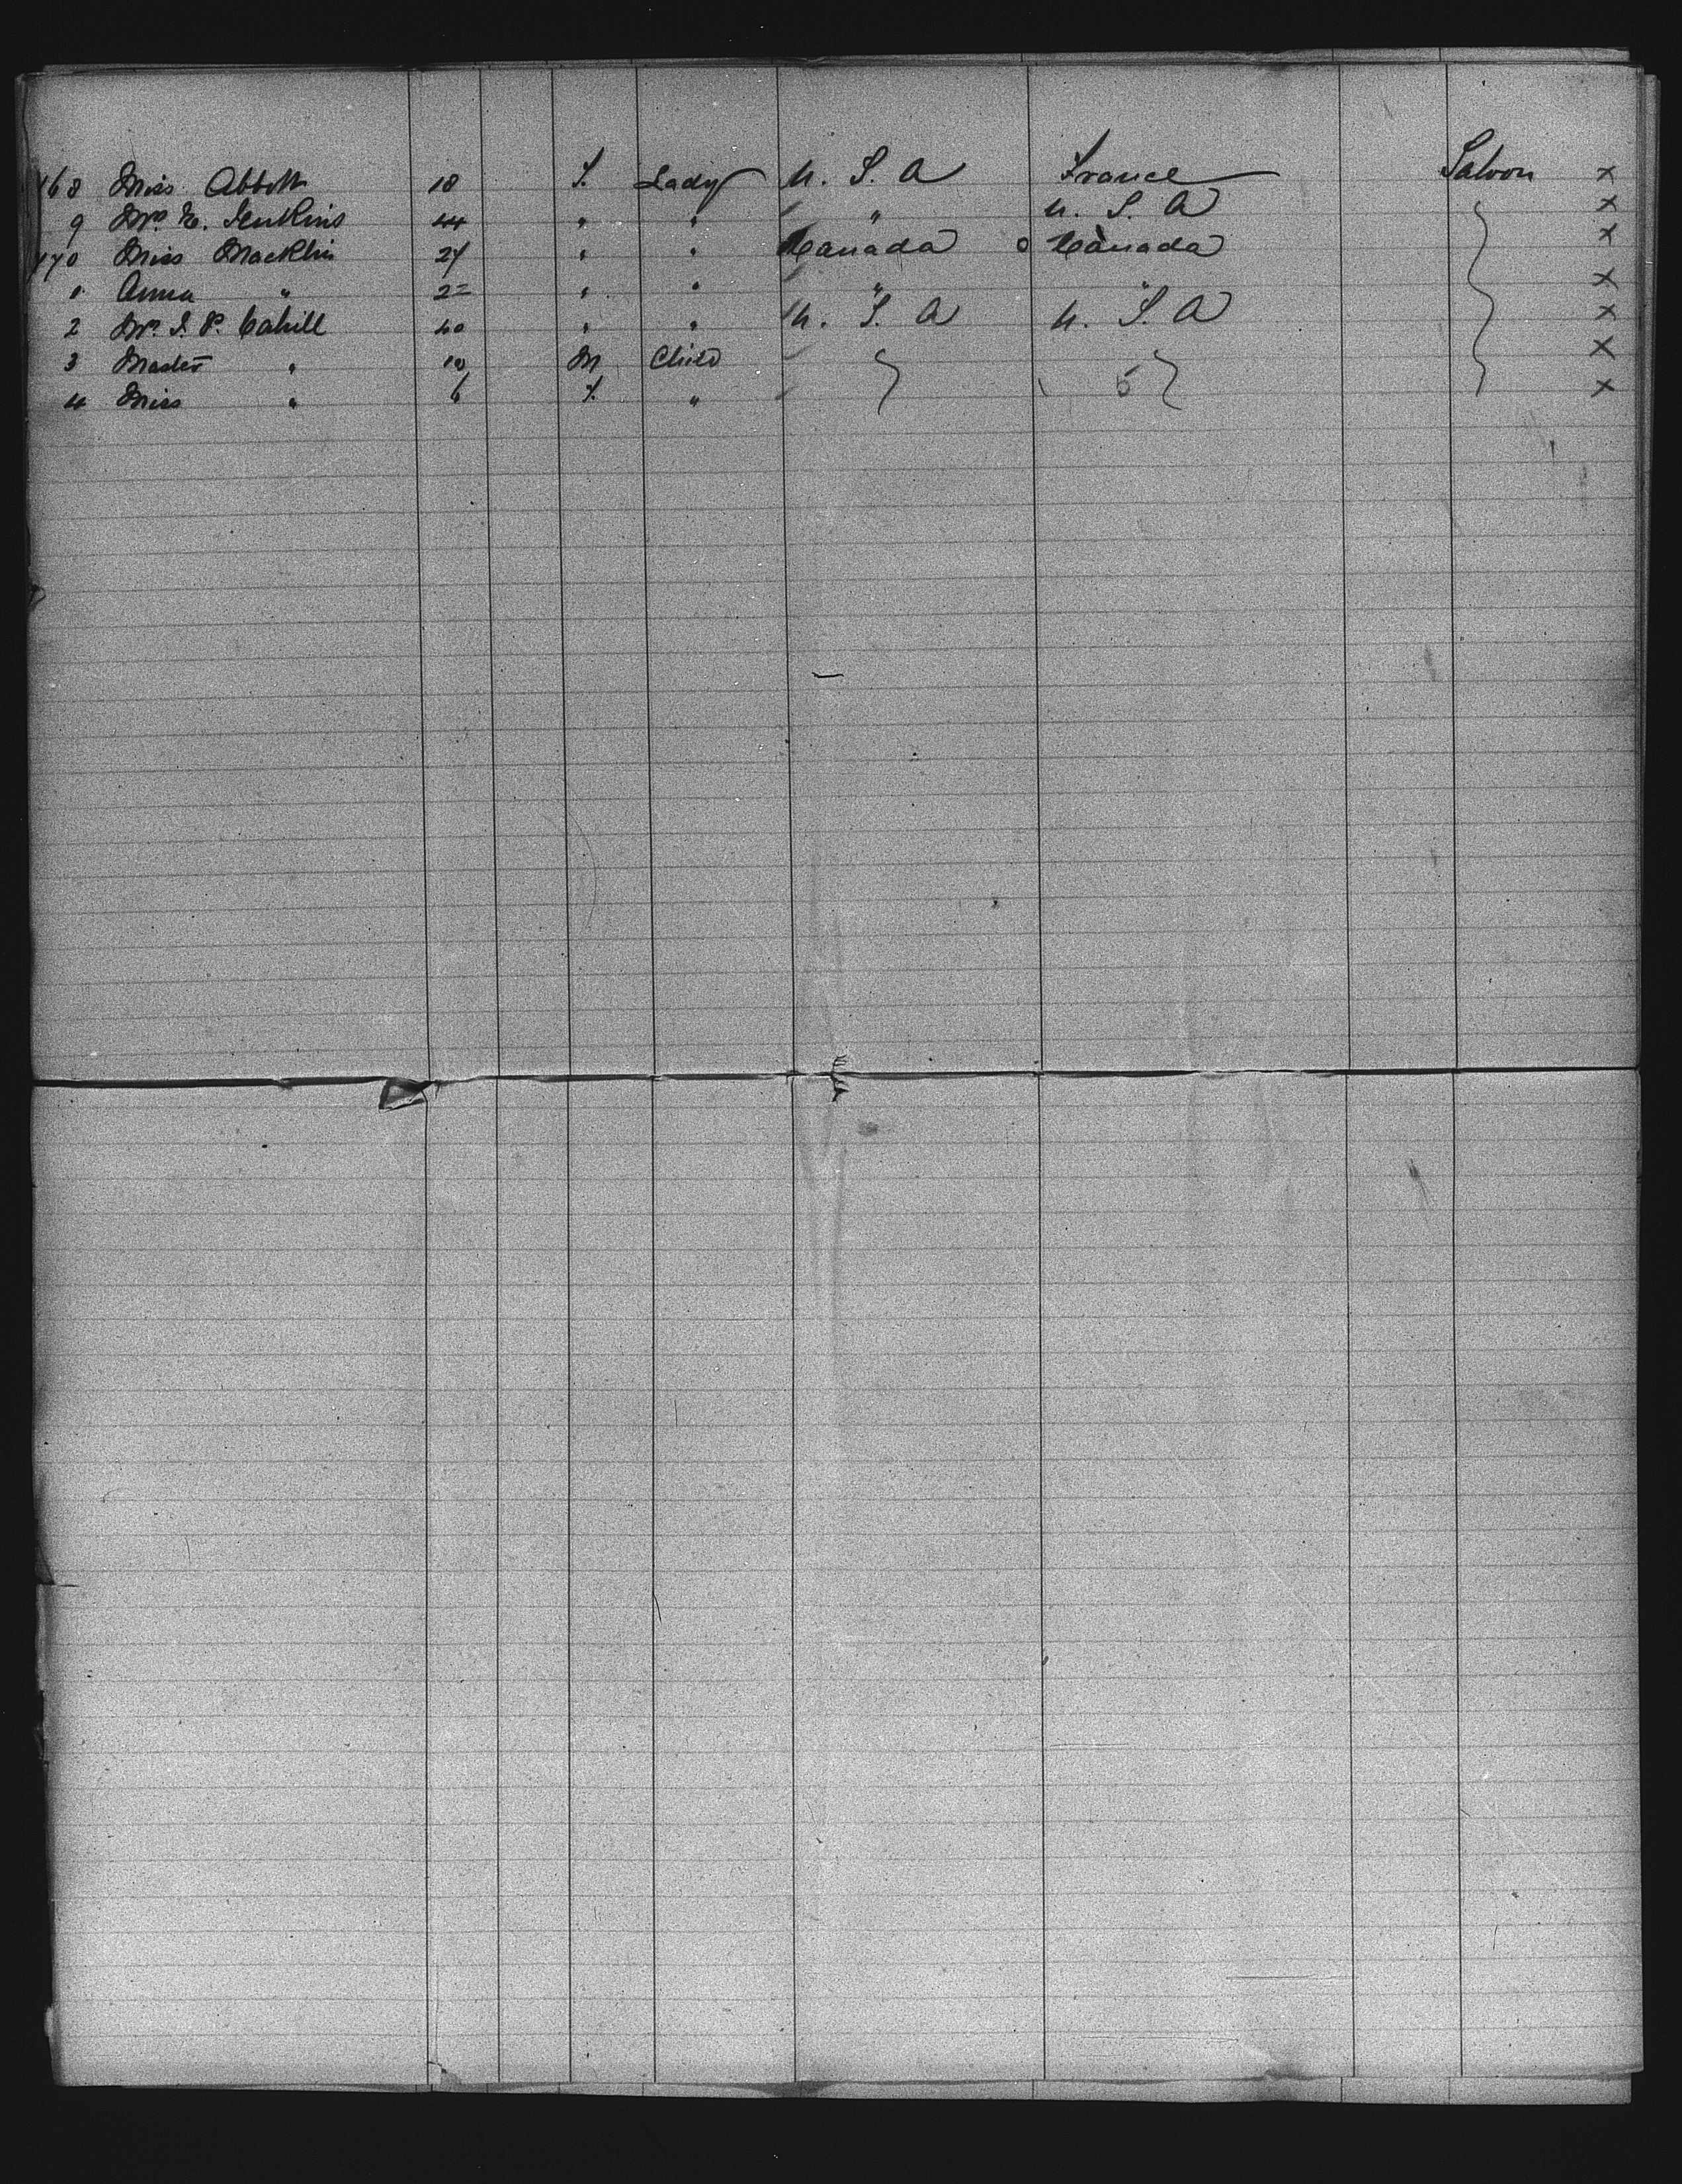 168 Miss Abbott 18 F. Lady U. S. A France Saloon x
9 Mrs E. Jenkins 44 " " " U. S. A x
170 Miss Macklin 27 " " Canada o Canada x
1 Anna " 22 " " " " x
2 Mrs J. P. Cahill 40 " " U. S. A U. S. A x
3 Master " 10 M Child x
4 Miss " 6 F. " 5 x